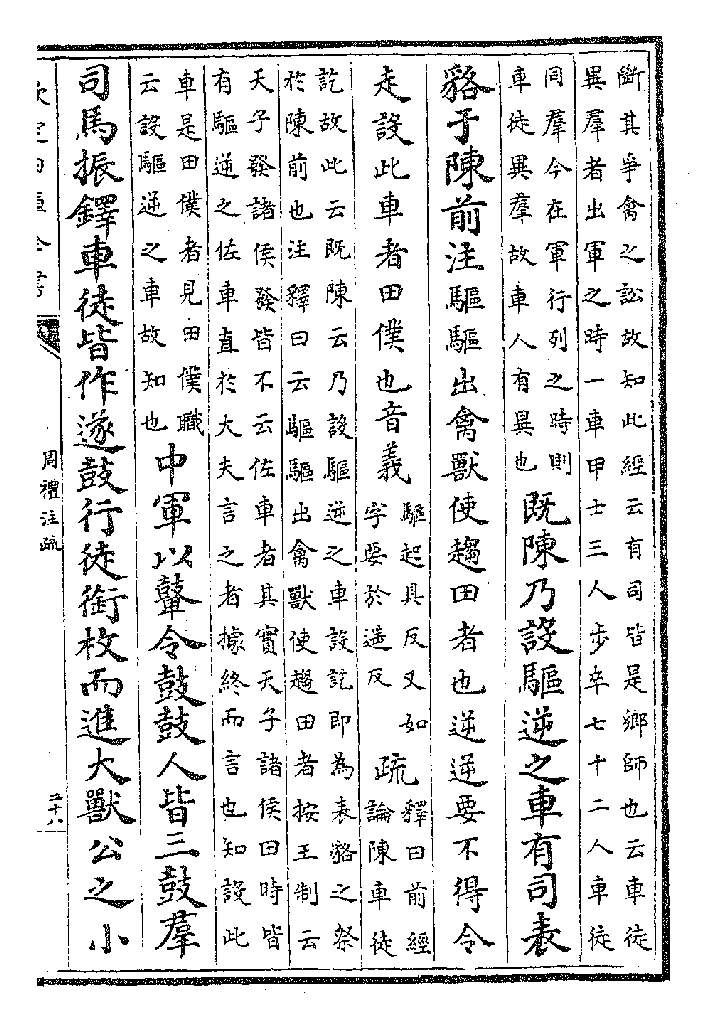 斷其爭禽之訟故知此經云有司皆是鄉師也云車徒
異羣者出軍之時一車甲士三人步卒七十二人車徒
同羣今在軍行列之時則
車徒異羣故車人有異也
既陳乃設驅逆之車有司表
貉于陳前注驅驅出禽獸使趨田者也逆逆要不得令
走設此車者田僕也音義
驅起具反又如
字要於遥反
疏
釋曰前經
論陳車徒
訖故此云既陳云乃設驅逆之車設訖即為表貉之祭
於陳前也注釋曰云驅驅出禽獸使趨田者按王制云
天子發諸侯發皆不云佐車者其實天子諸侯田時皆
有驅逆之佐車直於大夫言之者據終而言也知設此
車是田僕者見田僕職
云設驅逆之車故知也
中軍以鼙令鼓鼓人皆三鼓羣
司馬振鐸車徒皆作遂鼓行徒銜枚而進大獸公之小
欽定四庫全書
周禮注疏
二十八